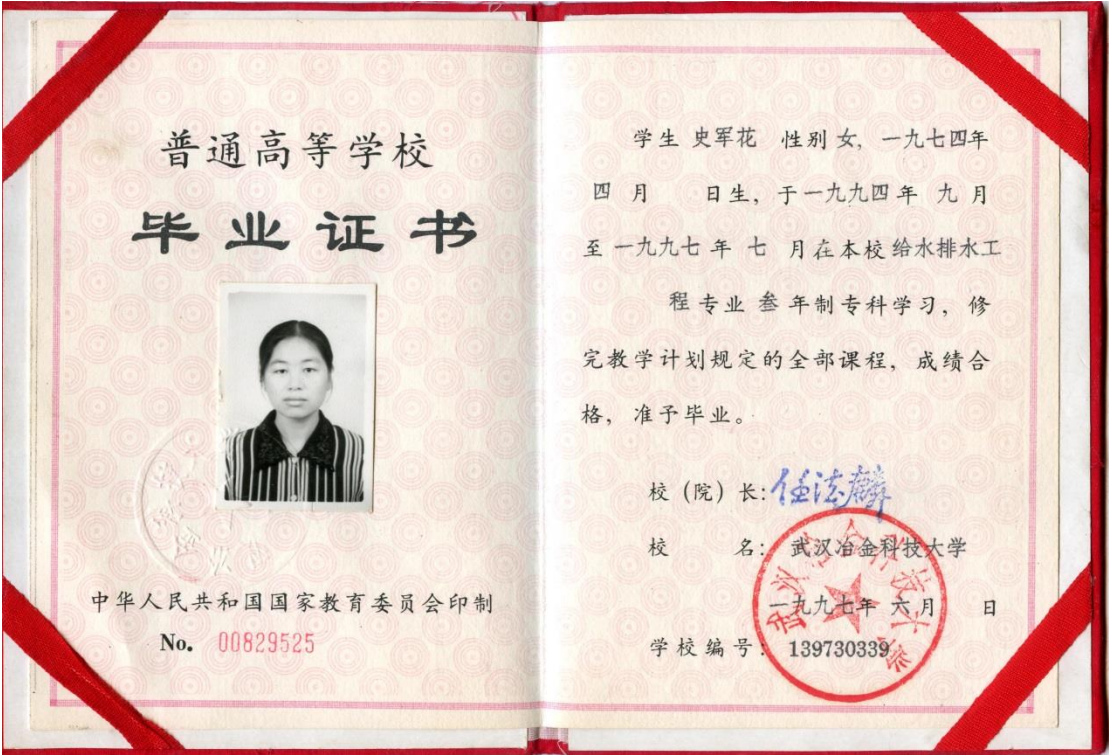 普通高等学校
毕业证书
中华人民共和国国家教育委员会印制
No. 00829525
学生 史军花 性别 女, 一九七四年
四 月 日生, 于一九九四年 九 月
至 一九九七 年 七 月在本校 给水排水工
程 专业 叁 年制专科学习, 修
完教学计划规定的全部课程, 成绩合
格, 准予毕业。
校 (院) 长: 任德麟
校 名: 武汉冶金科技大学
一九九七年 六 月 日
学校编号: 139730339
武汉冶金科技大学